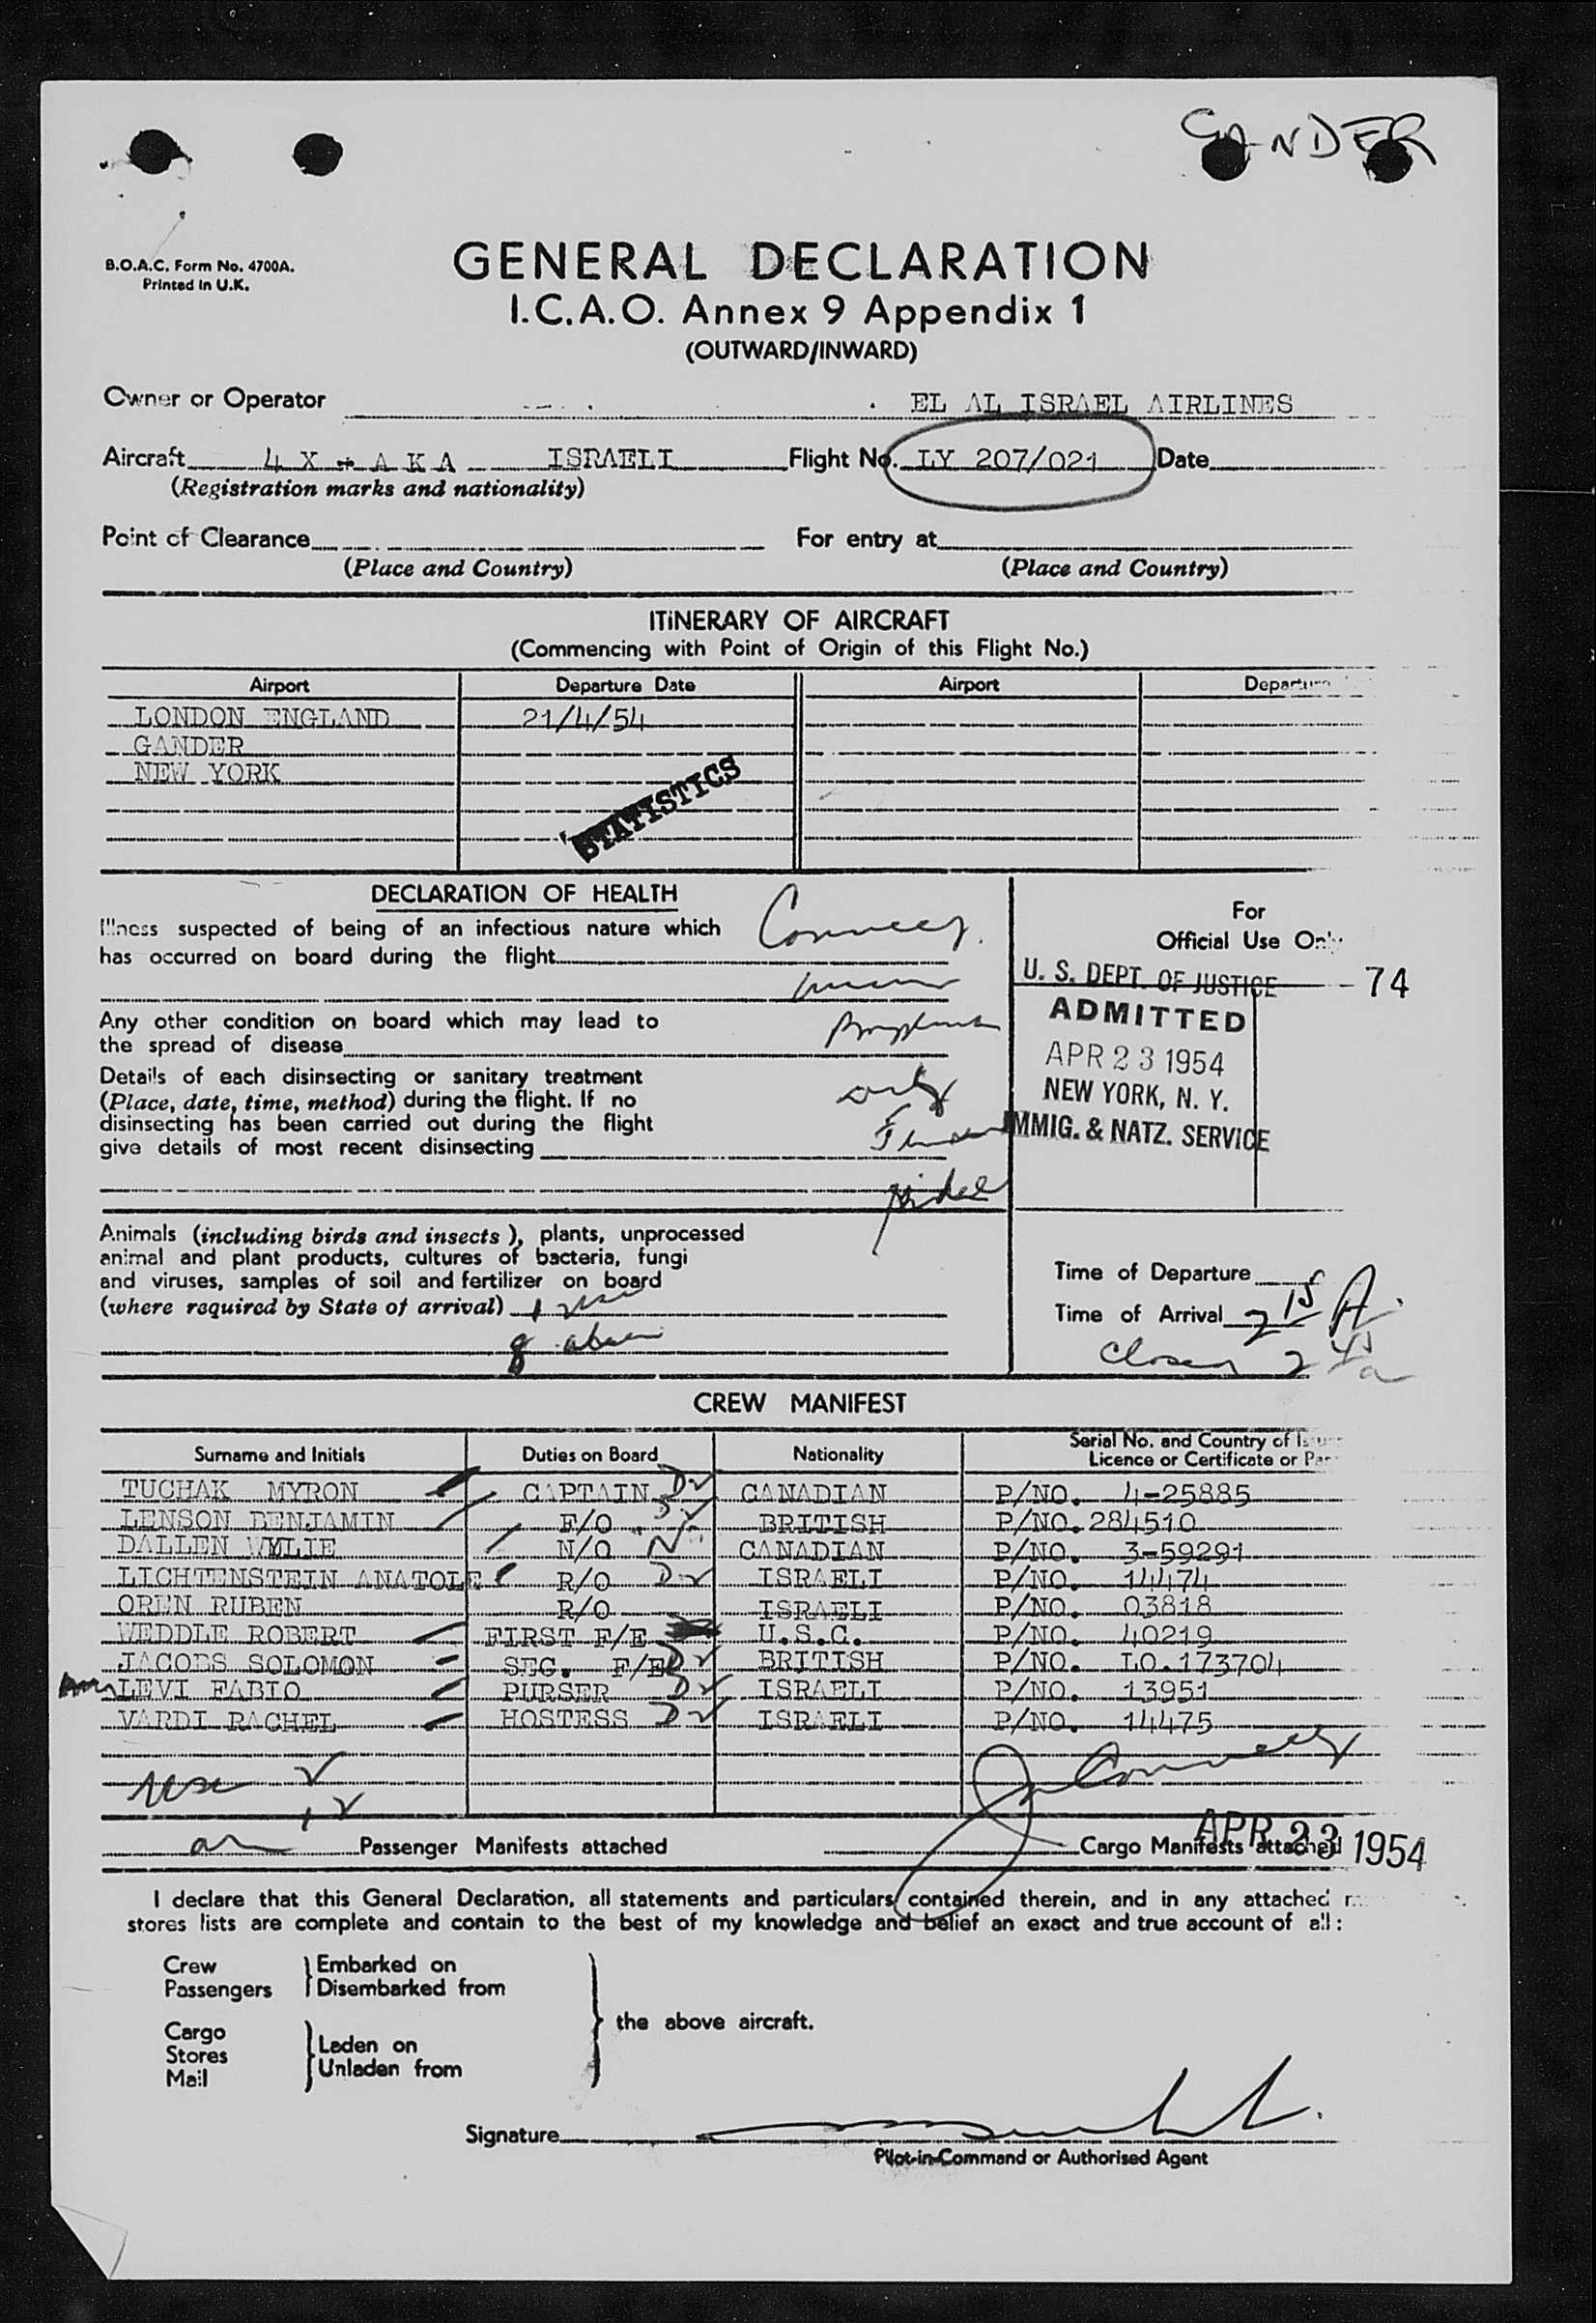 GANDER
B.O.A.C. Form No. 4700A.
Printed in U.K.
GENERAL DECLARATION
I.C.A.O. Annex 9 Appendix 1
(OUTWARD/INWARD)
Owner or Operator EL AL ISRAEL AIRLINES
Aircraft 4 X - A K A ISRAELI Flight No. LY 207/021 Date
(Registration marks and nationality)
Point of Clearance For entry at
(Place and Country) (Place and Country)
ITINERARY OF AIRCRAFT
(Commencing with Point of Origin of this Flight No.)
Airport Departure Date Airport Departure
LONDON ENGLAND 21/4/54
GANDER
NEW YORK
STATISTICS
DECLARATION OF HEALTH
Illness suspected of being of an infectious nature which
has occurred on board during the flight
Any other condition on board which may lead to
the spread of disease
Details of each disinsecting or sanitary treatment
(Place, date, time, method) during the flight. If no
disinsecting has been carried out during the flight
give details of most recent disinsecting
For
Official Use Only
U. S. DEPT. OF JUSTICE 74
ADMITTED
APR 23 1954
NEW YORK, N. Y.
IMMIG. & NATZ. SERVICE
Animals (including birds and insects), plants, unprocessed
animal and plant products, cultures of bacteria, fungi
and viruses, samples of soil and fertilizer on board
(where required by State of arrival)
Time of Departure
Time of Arrival 2 15 A.
2 45 a
CREW MANIFEST
Surname and Initials Duties on Board Nationality Serial No. and Country of Issue
Licence or Certificate or
TUCHAK MYRON CAPTAIN CANADIAN P/NO. 4-25885
LENSON BENJAMIN F/O BRITISH P/NO. 284510
DALLEN WYLIE N/O CANADIAN P/NO. 3-59291
LICHTENSTEIN ANATOLE R/O ISRAELI P/NO. 14474
OREN RUBEN R/O ISRAELI P/NO. 03818
WEDDLE ROBERT FIRST F/E U.S.C. P/NO. 40219
JACOBS SOLOMON SEC. F/E BRITISH P/NO. LO.173704
LEVI FABIO PURSER ISRAELI P/NO. 13951
VARDI RACHEL HOSTESS ISRAELI P/NO. 14475
Passenger Manifests attached Cargo Manifests attached
APR 23 1954
I declare that this General Declaration, all statements and particulars contained therein, and in any attached
stores lists are complete and contain to the best of my knowledge and belief an exact and true account of all:
Crew Embarked on
Passengers Disembarked from
the above aircraft.
Cargo Laden on
Stores Unladen from
Mail
Signature
Pilot-in-Command or Authorised Agent